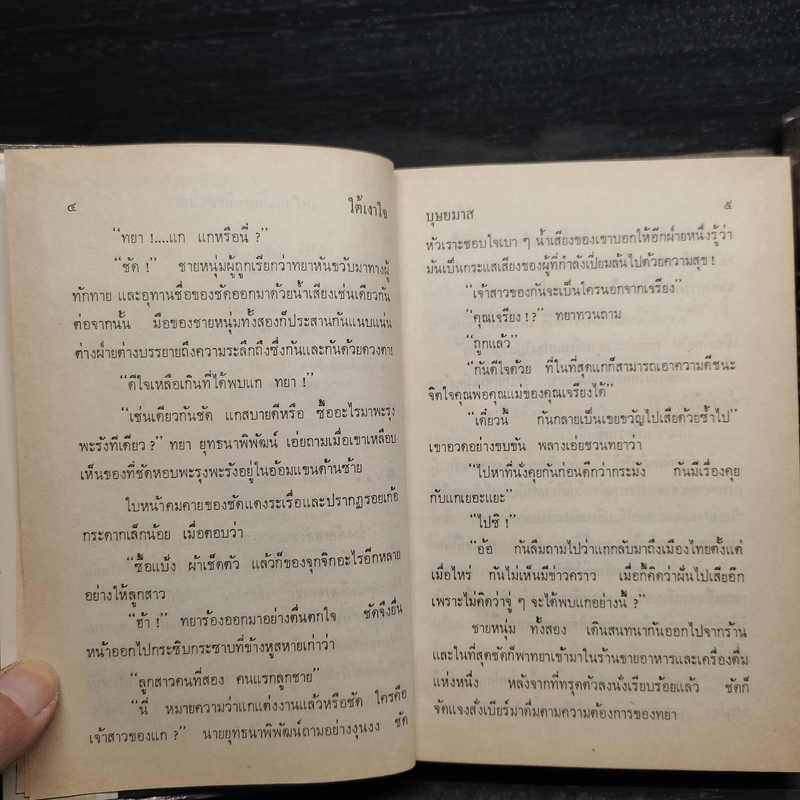 ๔
ใต้เงาใจ
“ทยา !....แก แกหรือนี่ ?”
“ชัด !” ชายหนุ่มผู้ถูกเรียกว่าทยาหันขวับมาทางผู้
ทักทาย และอุทานชื่อของชัดออกมาด้วยน้ำเสียงเช่นเดียวกัน
ต่อจากนั้น มือของชายหนุ่มทั้งสองก็ประสานกันแนบแน่น
ต่างฝ่ายต่างบรรยายถึงความระลึกถึงซึ่งกันและกันด้วยดวงตา!
“ดีใจเหลือเกินที่ได้พบแก ทยา !”
“เช่นเดียวกันชัด แกสบายดีหรือ ซื้ออะไรมาพะรุง
พะรังทีเดียว ?” ทยา ยุทธนาพิพัฒน์ เอ่ยถามเมื่อเขาเหลือบ
เห็นของที่ชัดหอบพะรุงพะรังอยู่ในอ้อมแขนด้านซ้าย
ใบหน้าคมคายของชัดแดงระเรื่อและปรากฏรอยเก้อ
กระดากเล็กน้อย เมื่อตอบว่า
“ซื้อแป้ง ผ้าเช็ดตัว แล้วก็ของจุกจิกอะไรอีกหลาย
อย่างให้ลูกสาว
“ฮ้า !” ทยาร้องออกมาอย่างตื่นตกใจ ชัดจึงยื่น
หน้าออกไปกระซิบกระซาบที่ข้างหูสหายเก่าว่า
“ลูกสาวคนที่สอง คนแรกลูกชาย”
“นี่ หมายความว่าแกแต่งงานแล้วหรือชัด ใครคือ
เจ้าสาวของแก ?” นายยุทธนาพิพัฒน์ถามอย่างงุนงง ชัด
บุษยมาส
๕
หัวเราะชอบใจเบา ๆ น้ำเสียงของเขาบอกให้อีกฝ่ายหนึ่งรู้ว่า
มันเป็นกระแสเสียงของผู้ที่กำลังเปี่ยมล้นไปด้วยความสุข !
“เจ้าสาวของกันจะเป็นใครนอกจากเจรียง”
“คุณเจรียง !?” ทยาทวนถาม
“ถูกแล้ว”
“กันดีใจด้วย ที่ในที่สุดแกก็สามารถเอาความดีชนะ
จิตใจคุณพ่อคุณแม่ของคุณเจรียงได้”
“เดี๋ยวนี้ กันกลายเป็นเขยขวัญไปเสียด้วยซ้ำไป”
เขาอวดอย่างขบขัน พลางเอ่ยชวนทยาว่า
“ไปหาที่นั่งคุยกันก่อนดีกว่ากระมัง กันมีเรื่องคุย
กับแกเยอะแยะ”
“ไปซิ !”
“อ้อ กันลืมถามไปว่าแกกลับมาถึงเมืองไทยตั้งแต่
เมื่อไหร่ กันไม่เห็นมีข่าวคราว เมื่อกี้คิดว่าฝันไปเสียอีก
เพราะไม่คิดว่าจู่ ๆ จะได้พบแกอย่างนี้ ?”
ชายหนุ่ม ทั้งสอง เดินสนทนากันออกไปจากร้าน
และในที่สุดชัดก็พาทยาเข้ามาในร้านขายอาหารและเครื่องดื่ม
แห่งหนึ่ง หลังจากที่ทรุดตัวลงนั่งเรียบร้อยแล้ว ชัดก็
จัดแจงสั่งเบียร์มาดื่มตามความต้องการของทยา